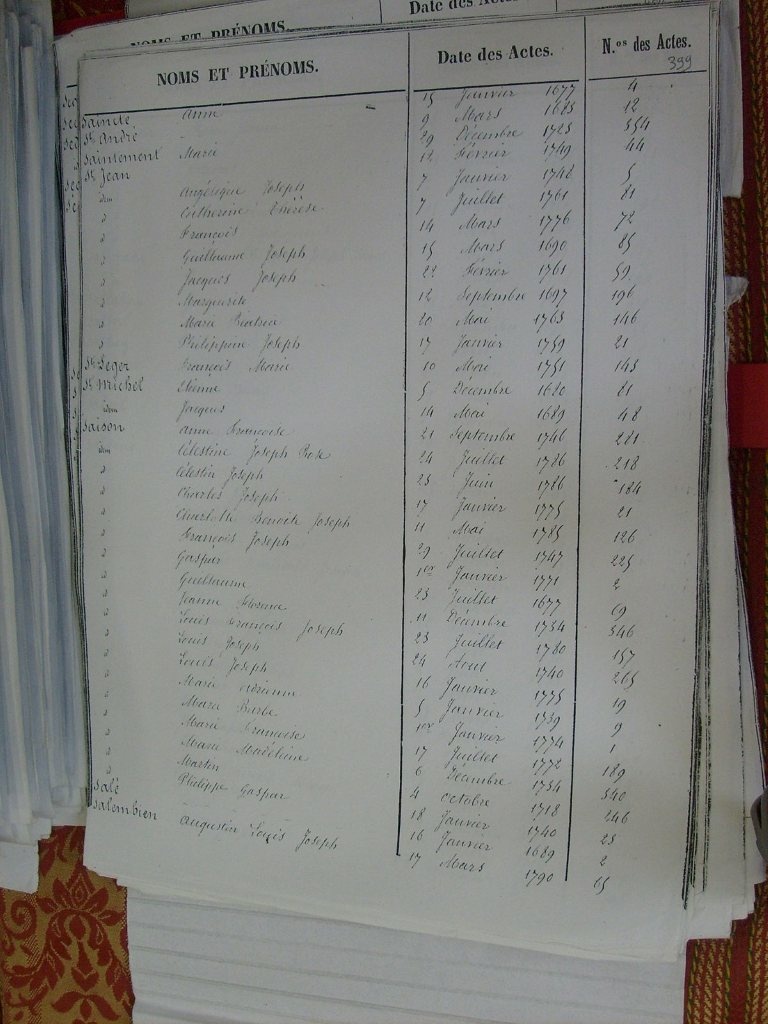 Date des Actes.
NOMS ET PRÉNOMS.
NOMS ET PRÉNOMS. Date des Actes. N.os des Actes.
399
Sainte Anne 15 Janvier 1677 4
St André 9 Mars 12
Saintement Marie 29 Décembre 1725 354
St Jean 12 Février 1749 44
idem Angélique Joseph 7 Janvier 5
" Catherine Thérèse 7 Juillet 1761 81
" François 14 Mars 1776 72
" Guillaume Joseph 15 Mars 1690 25
" Jacques Joseph 22 Février 1761 59
" Marguerite 12 Septembre 1697 196
" Marie Beatrice 20 Mai 1763 146
" Philippine Joseph 17 Janvier 1759 21
St Leger François Marie 10 Mai 1751 143
St Michel Etienne 5 Décembre 1680 81
idem Jacques 14 Mai 1689 48
Saison Anne Françoise 21 Septembre 1746 221
idem Célestine Joseph Rose 24 Juillet 1786 218
" Célestin Joseph 25 Juin 1786 184
" Charles Joseph 17 Janvier 1775 21
" Charlotte Benoite Joseph 11 Mai 1785 126
" François Joseph 29 Juillet 1747 225
" Gaspar 1er Janvier 1771 2
" Guillaume 23 Juillet 1677 69
" Jeanne Florence 11 Décembre 1734 346
" Louis François Joseph 23 Juillet 1780 157
" Louis Joseph 24 Aout 1740 265
" Louis Joseph 16 Janvier 1775 19
" Marie Adrienne 5 Janvier 1739 9
" Marie Barbe 1er Janvier 1774 1
" Marie Françoise 17 Juillet 1772 189
" Marie Madeleine 6 Décembre 1734 340
" Martin 4 Octobre 1718 246
" Philippe Gaspar 18 Janvier 1740 23
Salé 16 Janvier 1689 2
Salembien Augustin Louis Joseph 17 Mars 1790 65